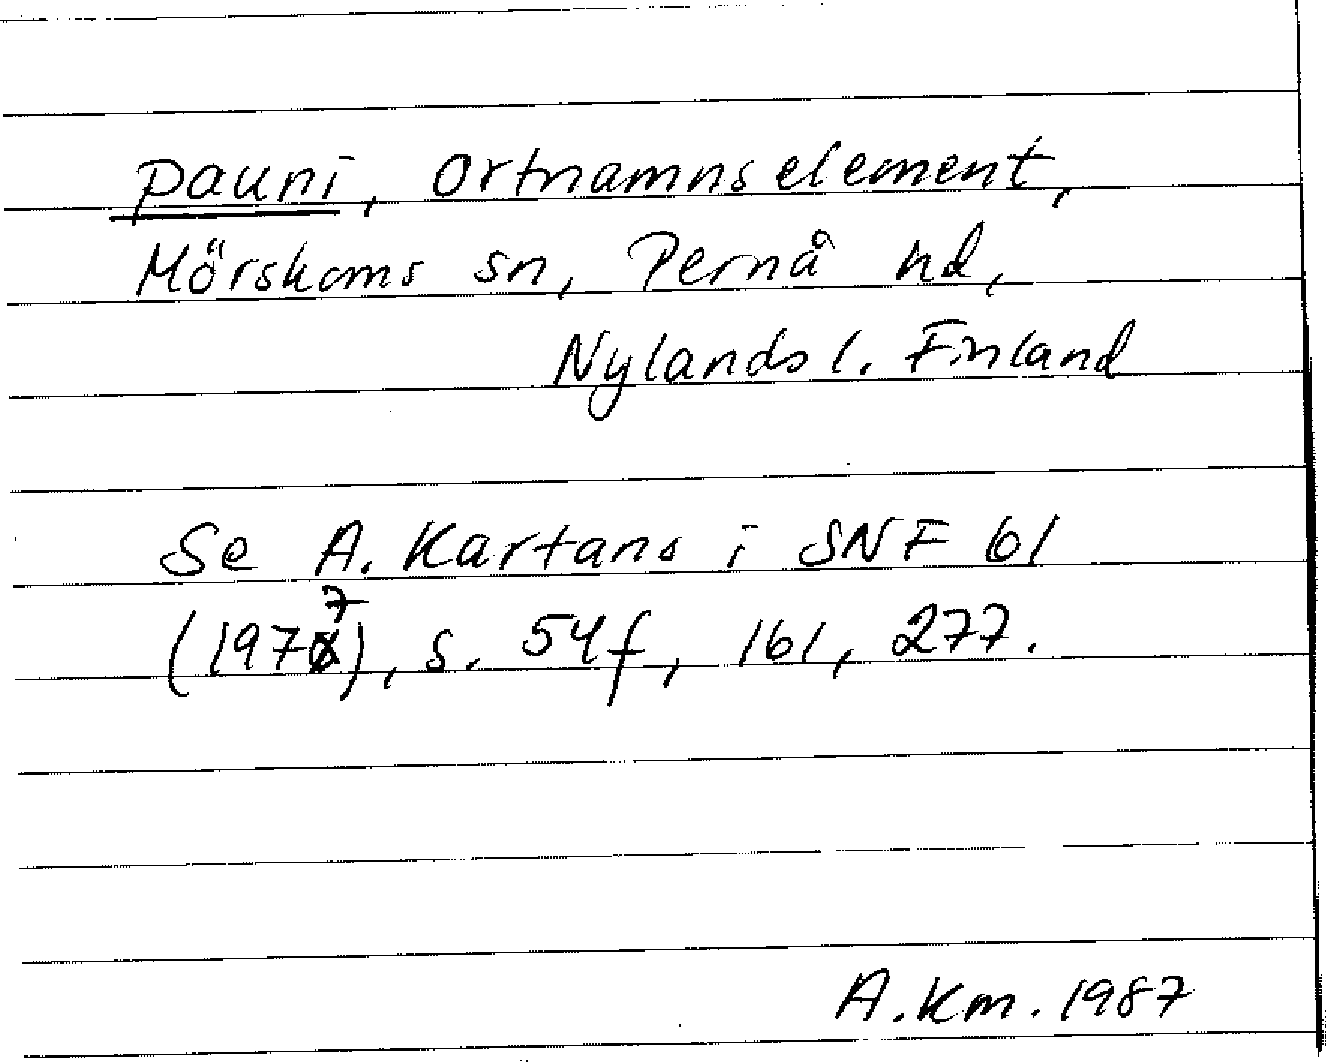 pauni, ortnamnselement,
Mörskoms sn, Pernå hd,
Nylands l. Finland
Se A. Kartans i SNF 61
(1977), s. 54f, 161, 277.
A.Km. 1987